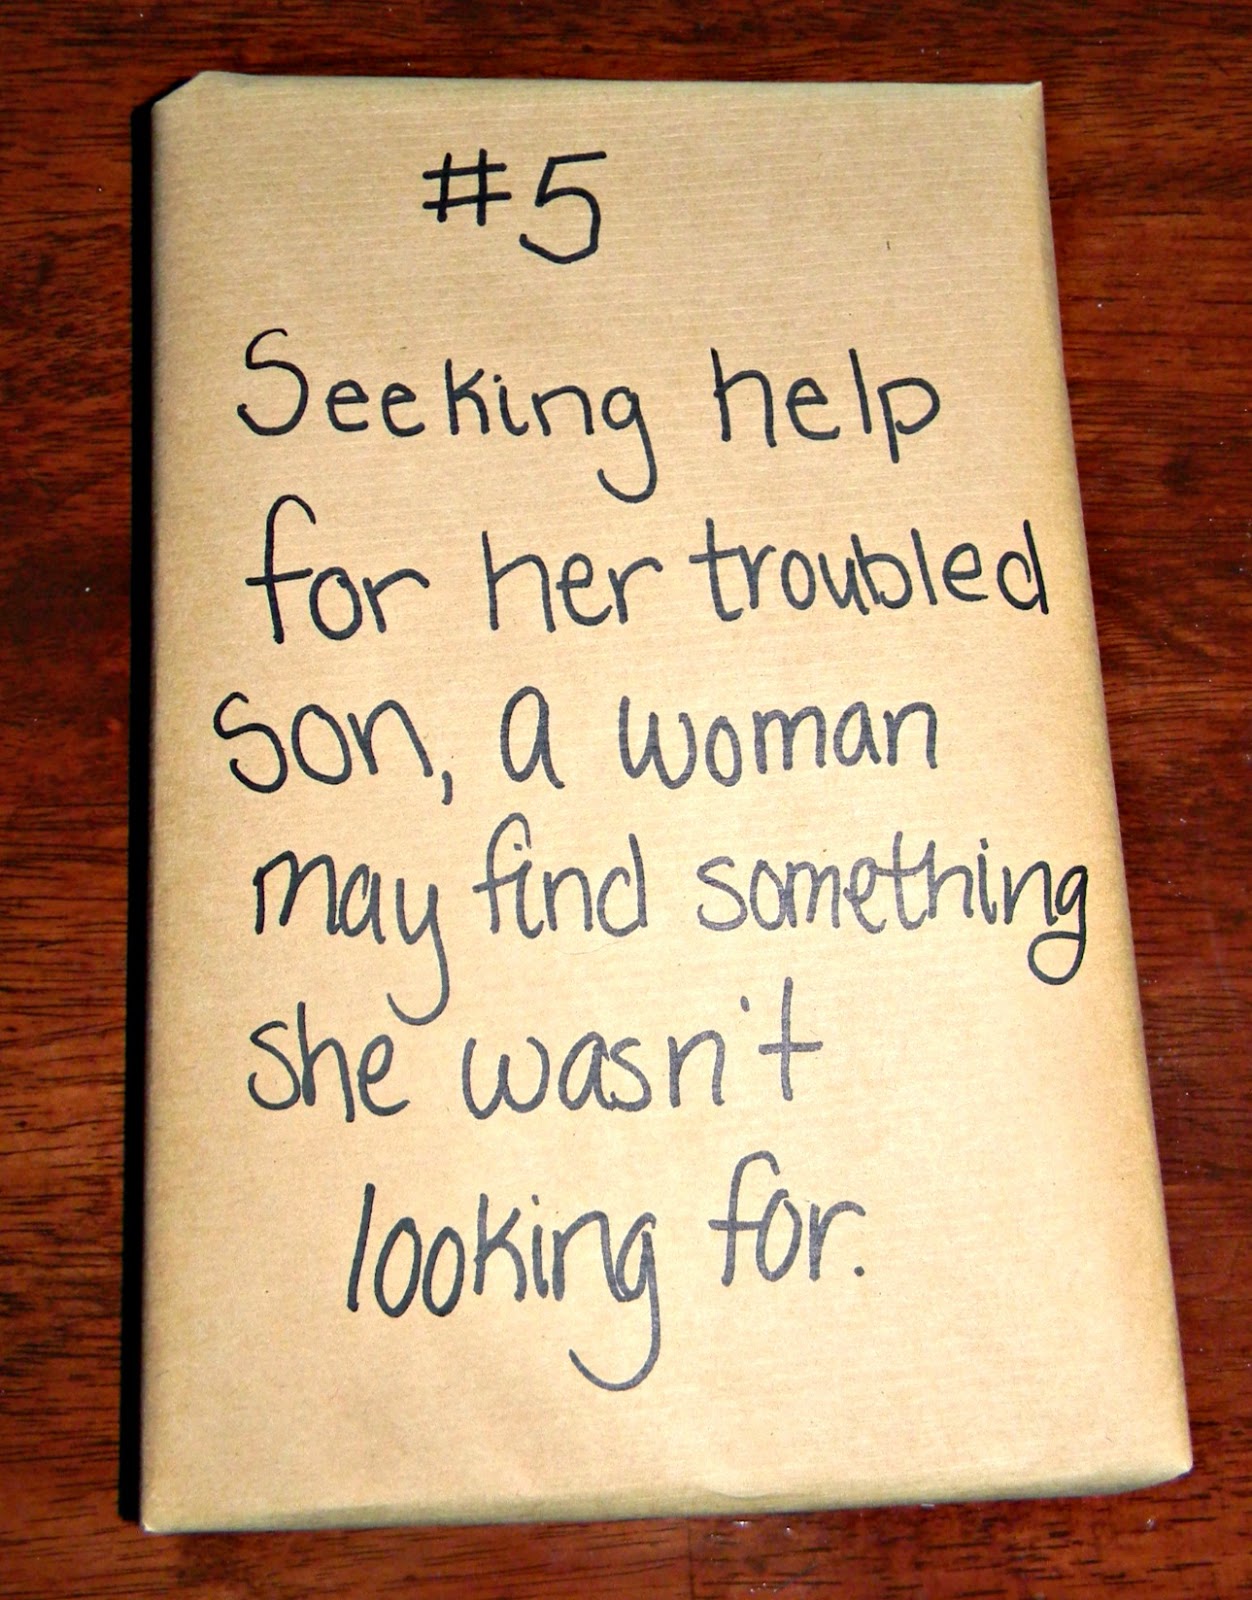 #5
Seeking help
for her troubled
son, a woman
may find something
she wasn't
looking for.